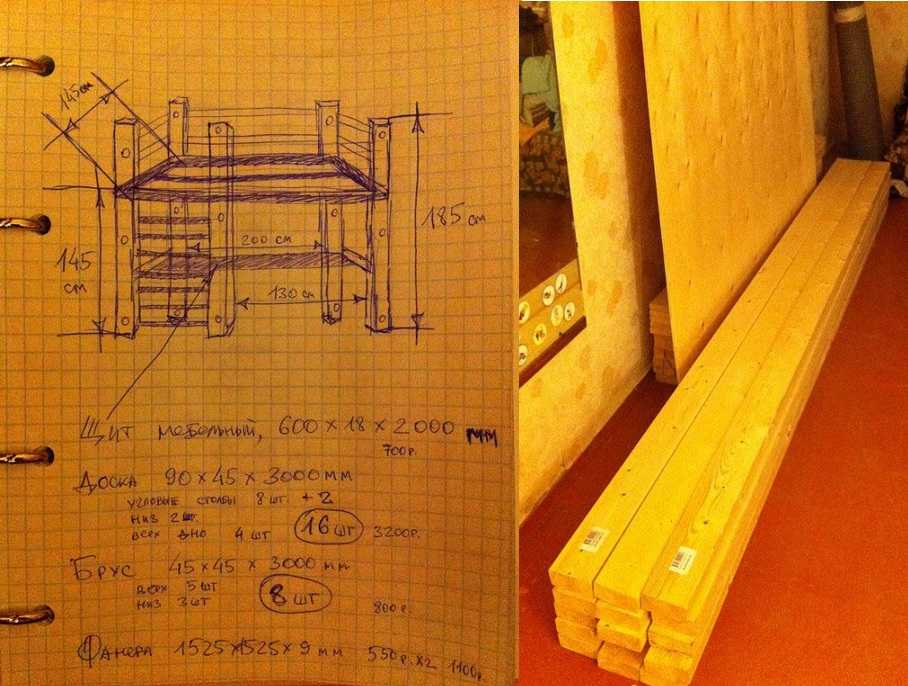 145см
185 см
200 см
145
см
130 см
Щит мебельный, 600 × 18 × 2000 мм
700р.
Доска 90 × 45 × 3000мм
угловые столбы 8 шт. + 2
низ 2 шт.
верх дно 4 шт 16 шт 3200р.
Брус 45 × 45 × 3000 мм
верх 5 шт
низ 3 шт 8 шт 800 р.
Фанера 1525×1525 × 9 мм 550р. ×2 1100р.